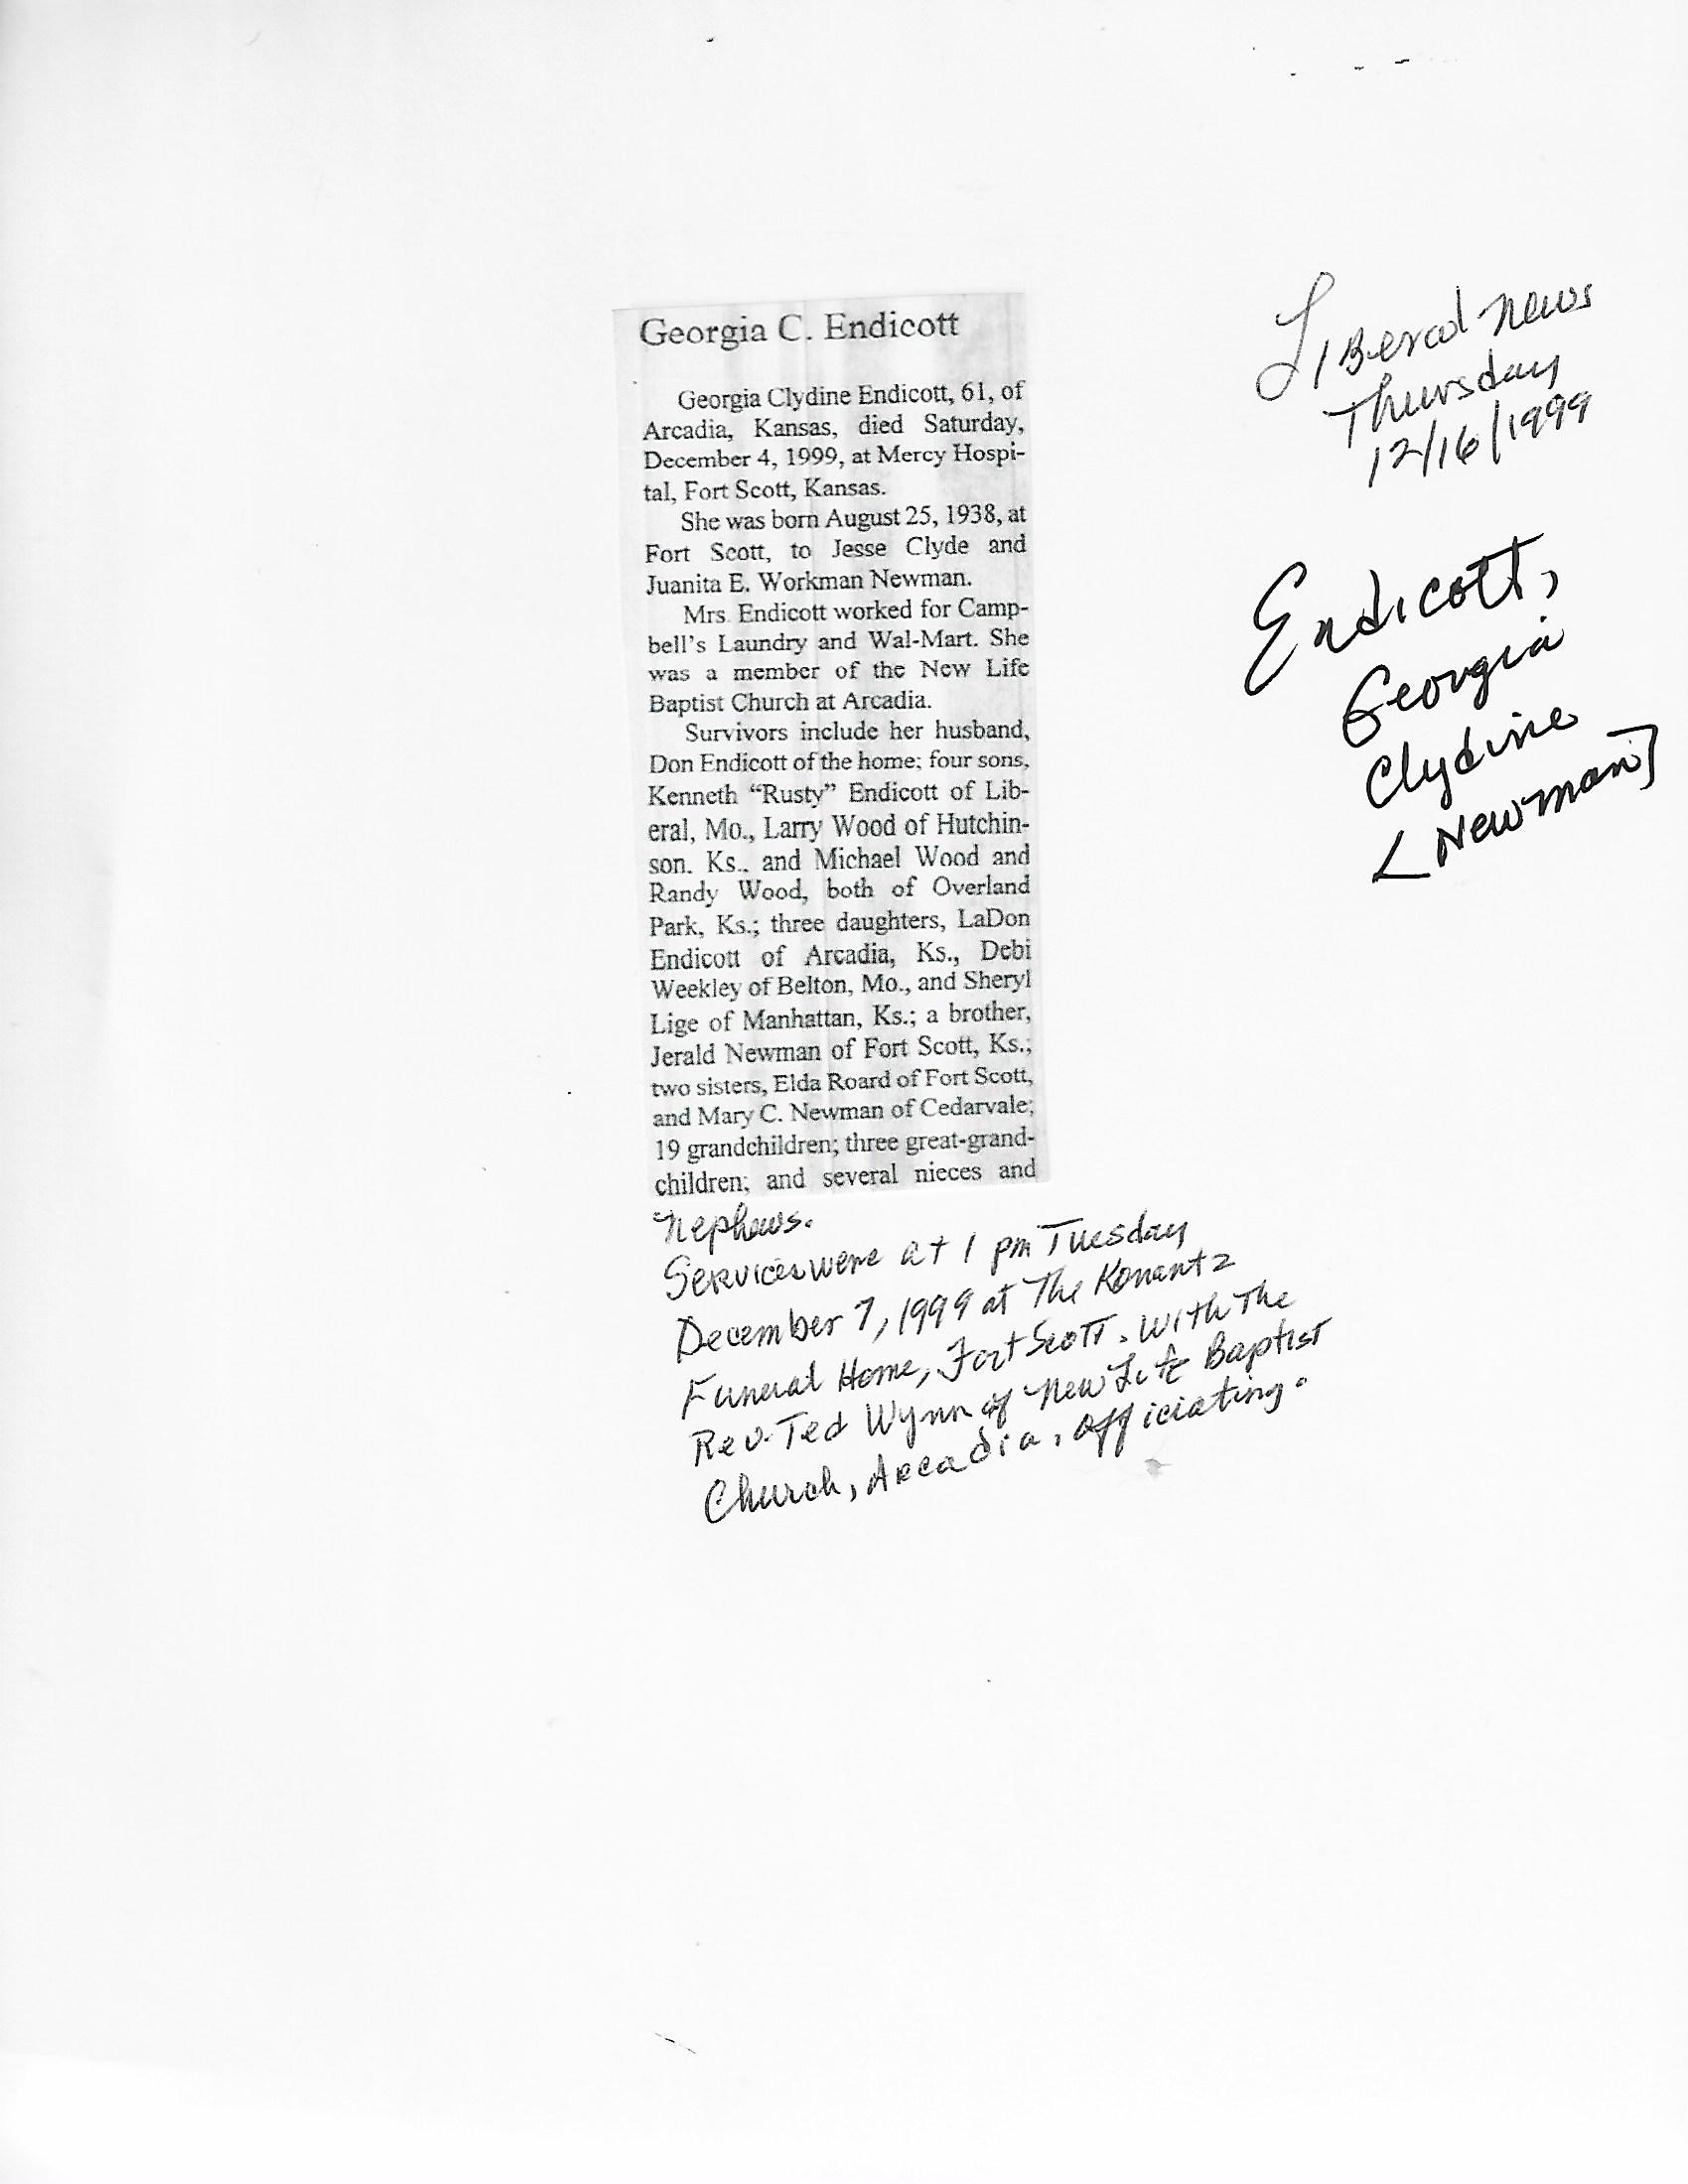 Georgia C. Endicott
Georgia Clydine Endicott, 61, of
Arcadia, Kansas, died Saturday,
December 4, 1999, at Mercy Hospi-
tal, Fort Scott, Kansas.
She was born August 25, 1938, at
Fort Scott, to Jesse Clyde and
Juanita E. Workman Newman.
Mrs. Endicott worked for Camp-
bell's Laundry and Wal-Mart. She
was a member of the New Life
Baptist Church at Arcadia.
Survivors include her husband,
Don Endicott of the home; four sons,
Kenneth “Rusty” Endicott of Lib-
eral, Mo., Larry Wood of Hutchin-
son, Ks., and Michael Wood and
Randy Wood, both of Overland
Park, Ks.; three daughters, LaDon
Endicott of Arcadia, Ks., Debi
Weekley of Belton, Mo., and Sheryl
Lige of Manhattan, Ks.; a brother,
Jerald Newman of Fort Scott, Ks.;
two sisters, Elda Roard of Fort Scott,
and Mary C. Newman of Cedarvale;
19 grandchildren; three great-grand-
children; and several nieces and
nephews.
Services were at 1 pm Tuesday
December 7, 1999 at The Konantz
Funeral Home, Fort Scott. With The
Rev. Ted Wynn of New Life Baptist
Church, Arcadia, officiating.
Liberal News
Thursday
12/16/1999
Endicott,
Georgia
Clydine
[Newman]